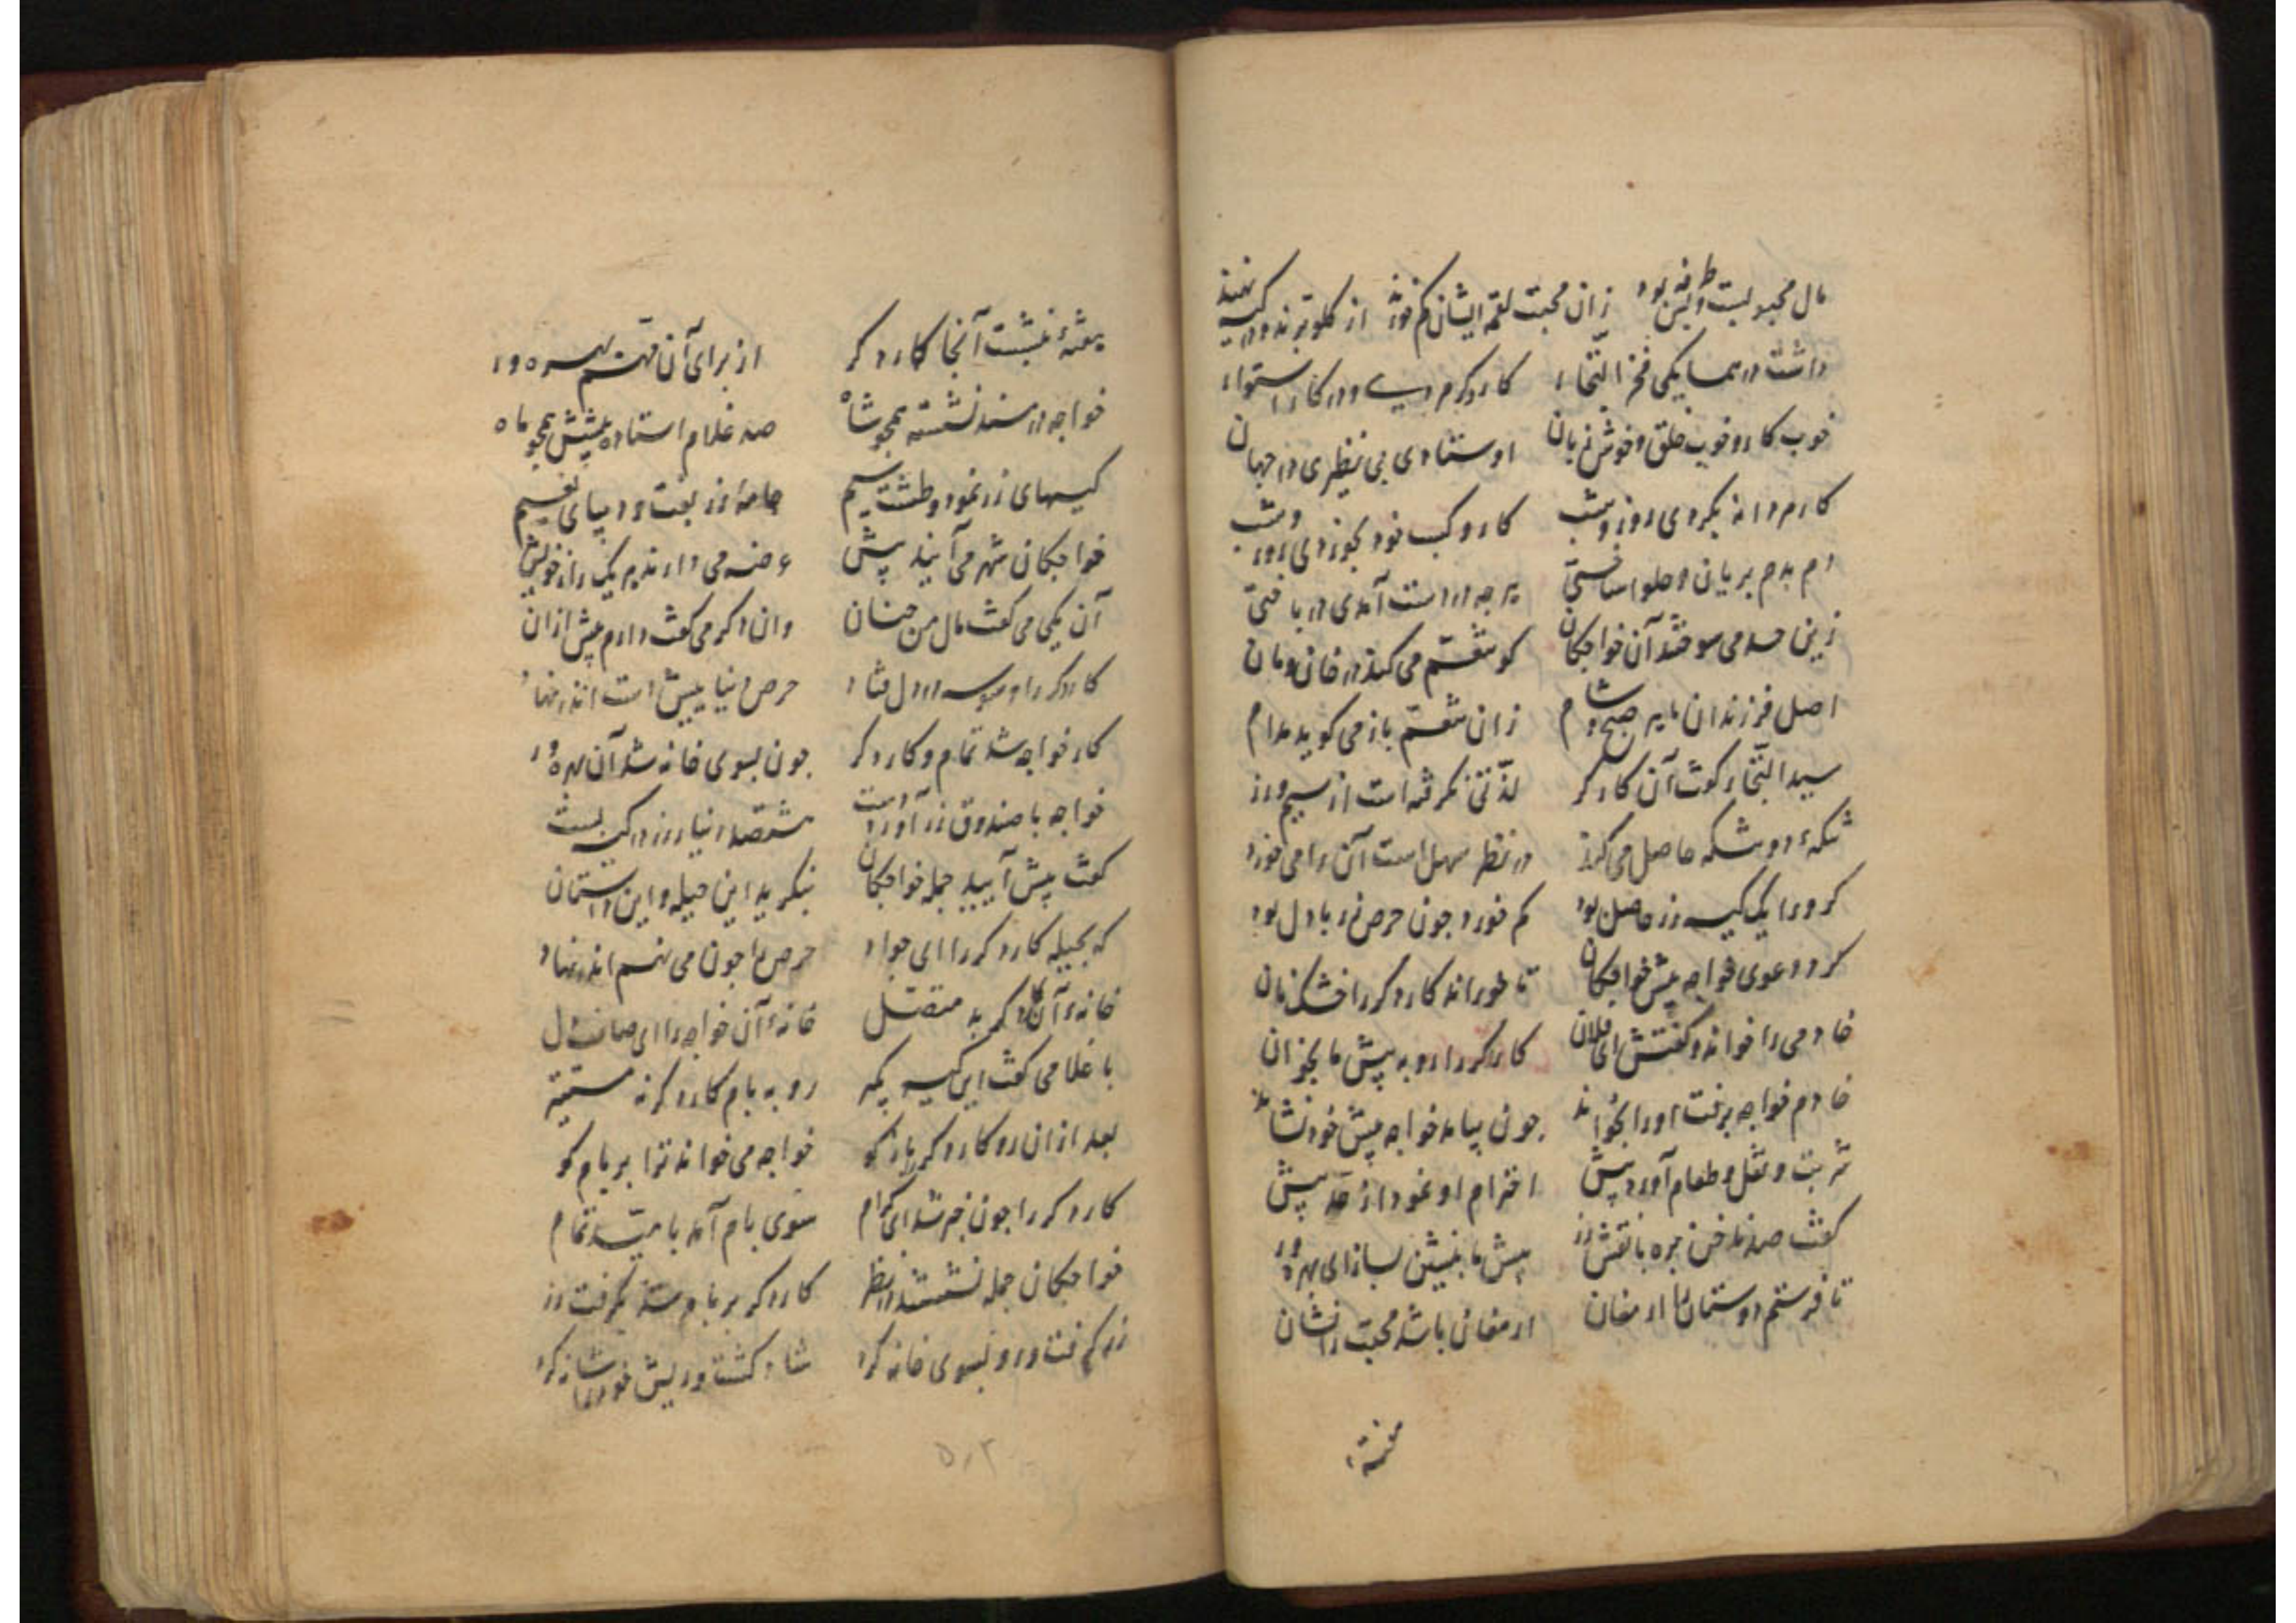 مال محبوبست و لبس بود زان محبت لقمه ایشان کم خورند از کلو برند و در کیسه نهند
داشت در همسایکی فخر التجار کاردکرم در کار استوار
خوب کار و خوب خلق و خوش زبان اوستادی بی نظیری در جهان
کارم دانه بکردی روز و شب کار و کسب خود بخوردی روز و شب
دم بدم بریان و حلوا ساختی هرچه در دست آمدی در باختی
زین حسد می سوختند آن خواجکان کو تنعم می کند در خان و مان
اصل فرزندان ما هر صبح و شام زان تنعم باز می کوید مدام
سید التجار کوت آن کاردکر لذتی نکرفته است از سیم و زر
تنکه دو تنکه حاصل می کند در نظر سهل است آن را می خورد
کر ورا یک کیسه زر حاصل بود کم خورد جون حرص زر با دل بود
کرد دعوی خواجه پیش خواجکان تا خوراند کاردکر را خشک نان
خادمی را خواند و کفتش ای فلان کاردکر را رو به پیش ما بخوان
خادم خواجه برفت او را بخواند جون بیامد خواجه پیش خود نشاند
شربت و نقل و طعام آورد پیش احترام او نمود از حد پیش
کفت صد ناخن بره با نقش زر پیش ما بنشین بساز ای بهره ور
تا فرستم دوستان را ارمغان ارمغان باشد محبت را نشان
پیشه بنشست آنجا کاردکر از برای آن قسم بهره ور
خواجه در مسند نشسته همجو شاه صد غلام استاده پیشش همجو ماه
کیسهای زر نمود و طشت سیم جامه زربفت و دیبای نعیم
خواجکان شهر می آیند پیش عرضه می دارند هر یک راز خویش
آن یکی می کفت مال من جنان وان دکر می کفت دارم پیش ازان
کاردکر را وسوسه در دل فتاد حرص دنیا پیش است اندر نهاد
کار خواجه شد تمام و کاردکر جون بسوی خانه شد آن بهره ور
خواجه با صندوق زر آورد دست هشتصد دینار زر در کیسه بست
کفت پیش آیید جمله خواجکان بنکرید این حیله و این داستان
که بحیله کاردکر را ای جواد حرص را جون می نهم اندر نهاد
خانه آن کاردکر بد متصل خانه آن خواجه را ای صاف دل
با غلامی کفت این کیسه بکیر رو به بام کاردکر نه
بعد ازان رو کاردکر را باز کو خواجه می خواند ترا بر بام کو
کاردکر را جون خبر شد ای کرام سوی بام آمد بامید تمام
خواجکان جمله نشستند در نظر کاردکر بر بام شد بکرفت زر
زر کرفت و رو بسوی خانه کرد شاد کشت و ریش خود را شانه کرد
۵۰۲